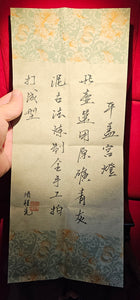 平盖宫燈
此壶選用原礦青灰
泥古法炼制全手工拍
打成型